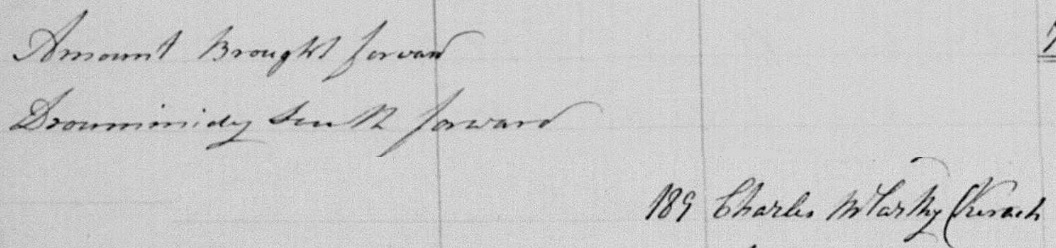 Amount Brought forward
Drouminidy South forward
189 Charles McCarthy